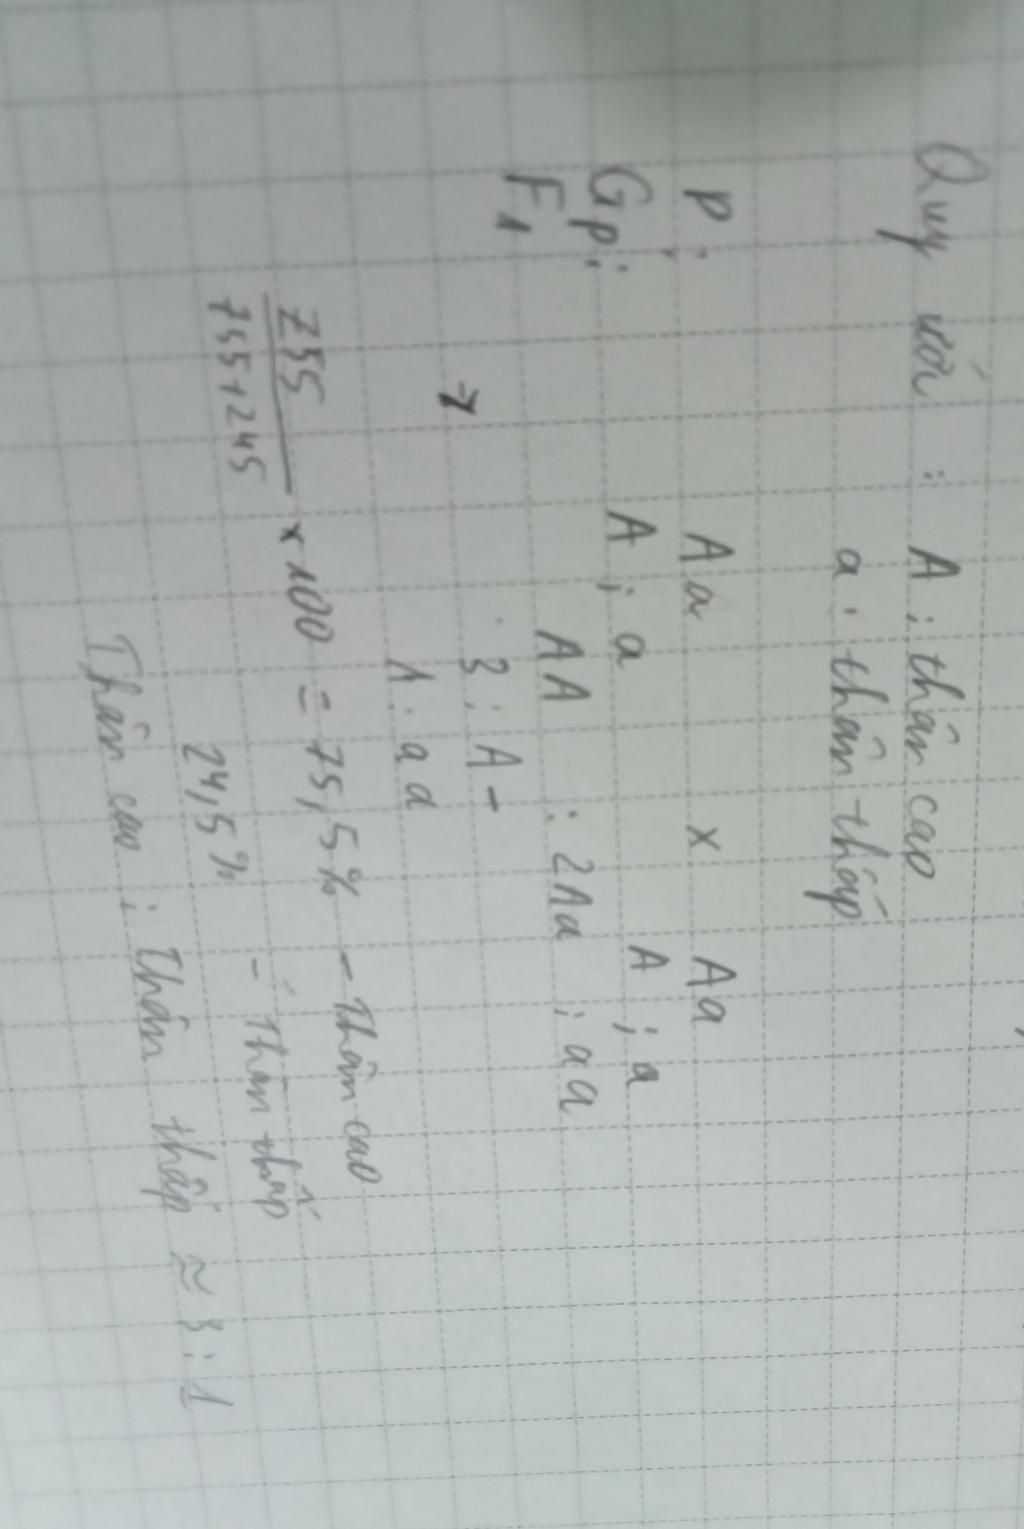 Quy ước : A : thân cao
a : thân thấp
P : Aa x Aa
Gp : A ; a A ; a
F1 AA : 2Aa : aa
→ 3 : A-
1 . aa
755/755+245 x 100 = 75,5% - thân cao
24,5% - thân thấp
Thân cao : thân thấp ≈ 3 : 1